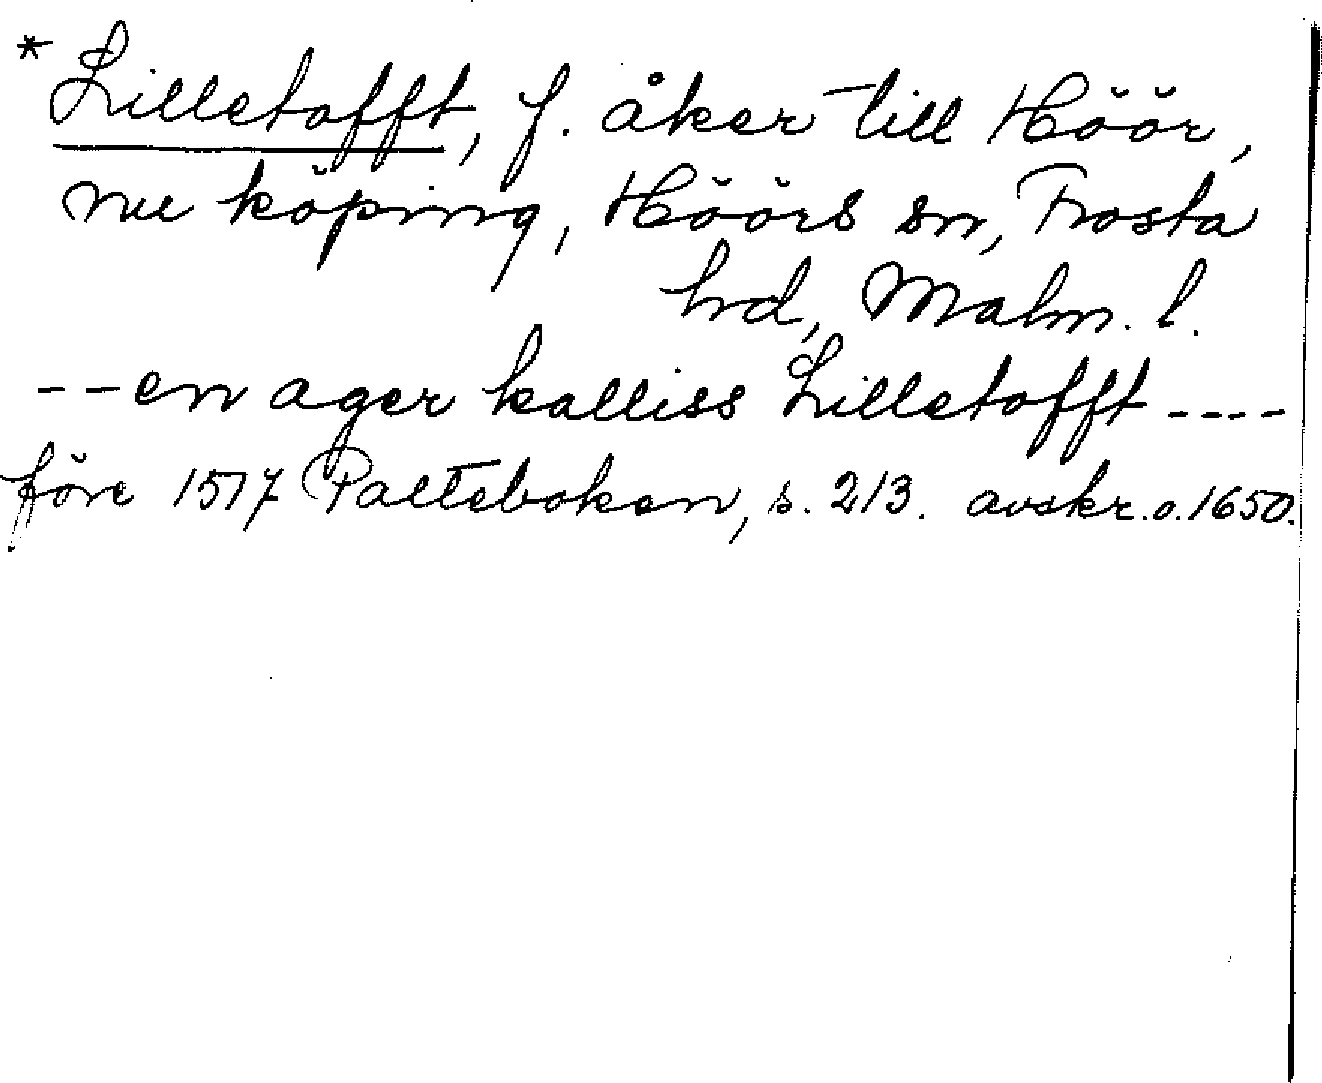 * Lilletofft, f. åker till Höör,
nu köping, Höörs sn, Frosta
hd, Malm. l.
--en ager kalliss Lilletofft ----
före 1517 Palteboken, s. 213. avskr. o. 1650.